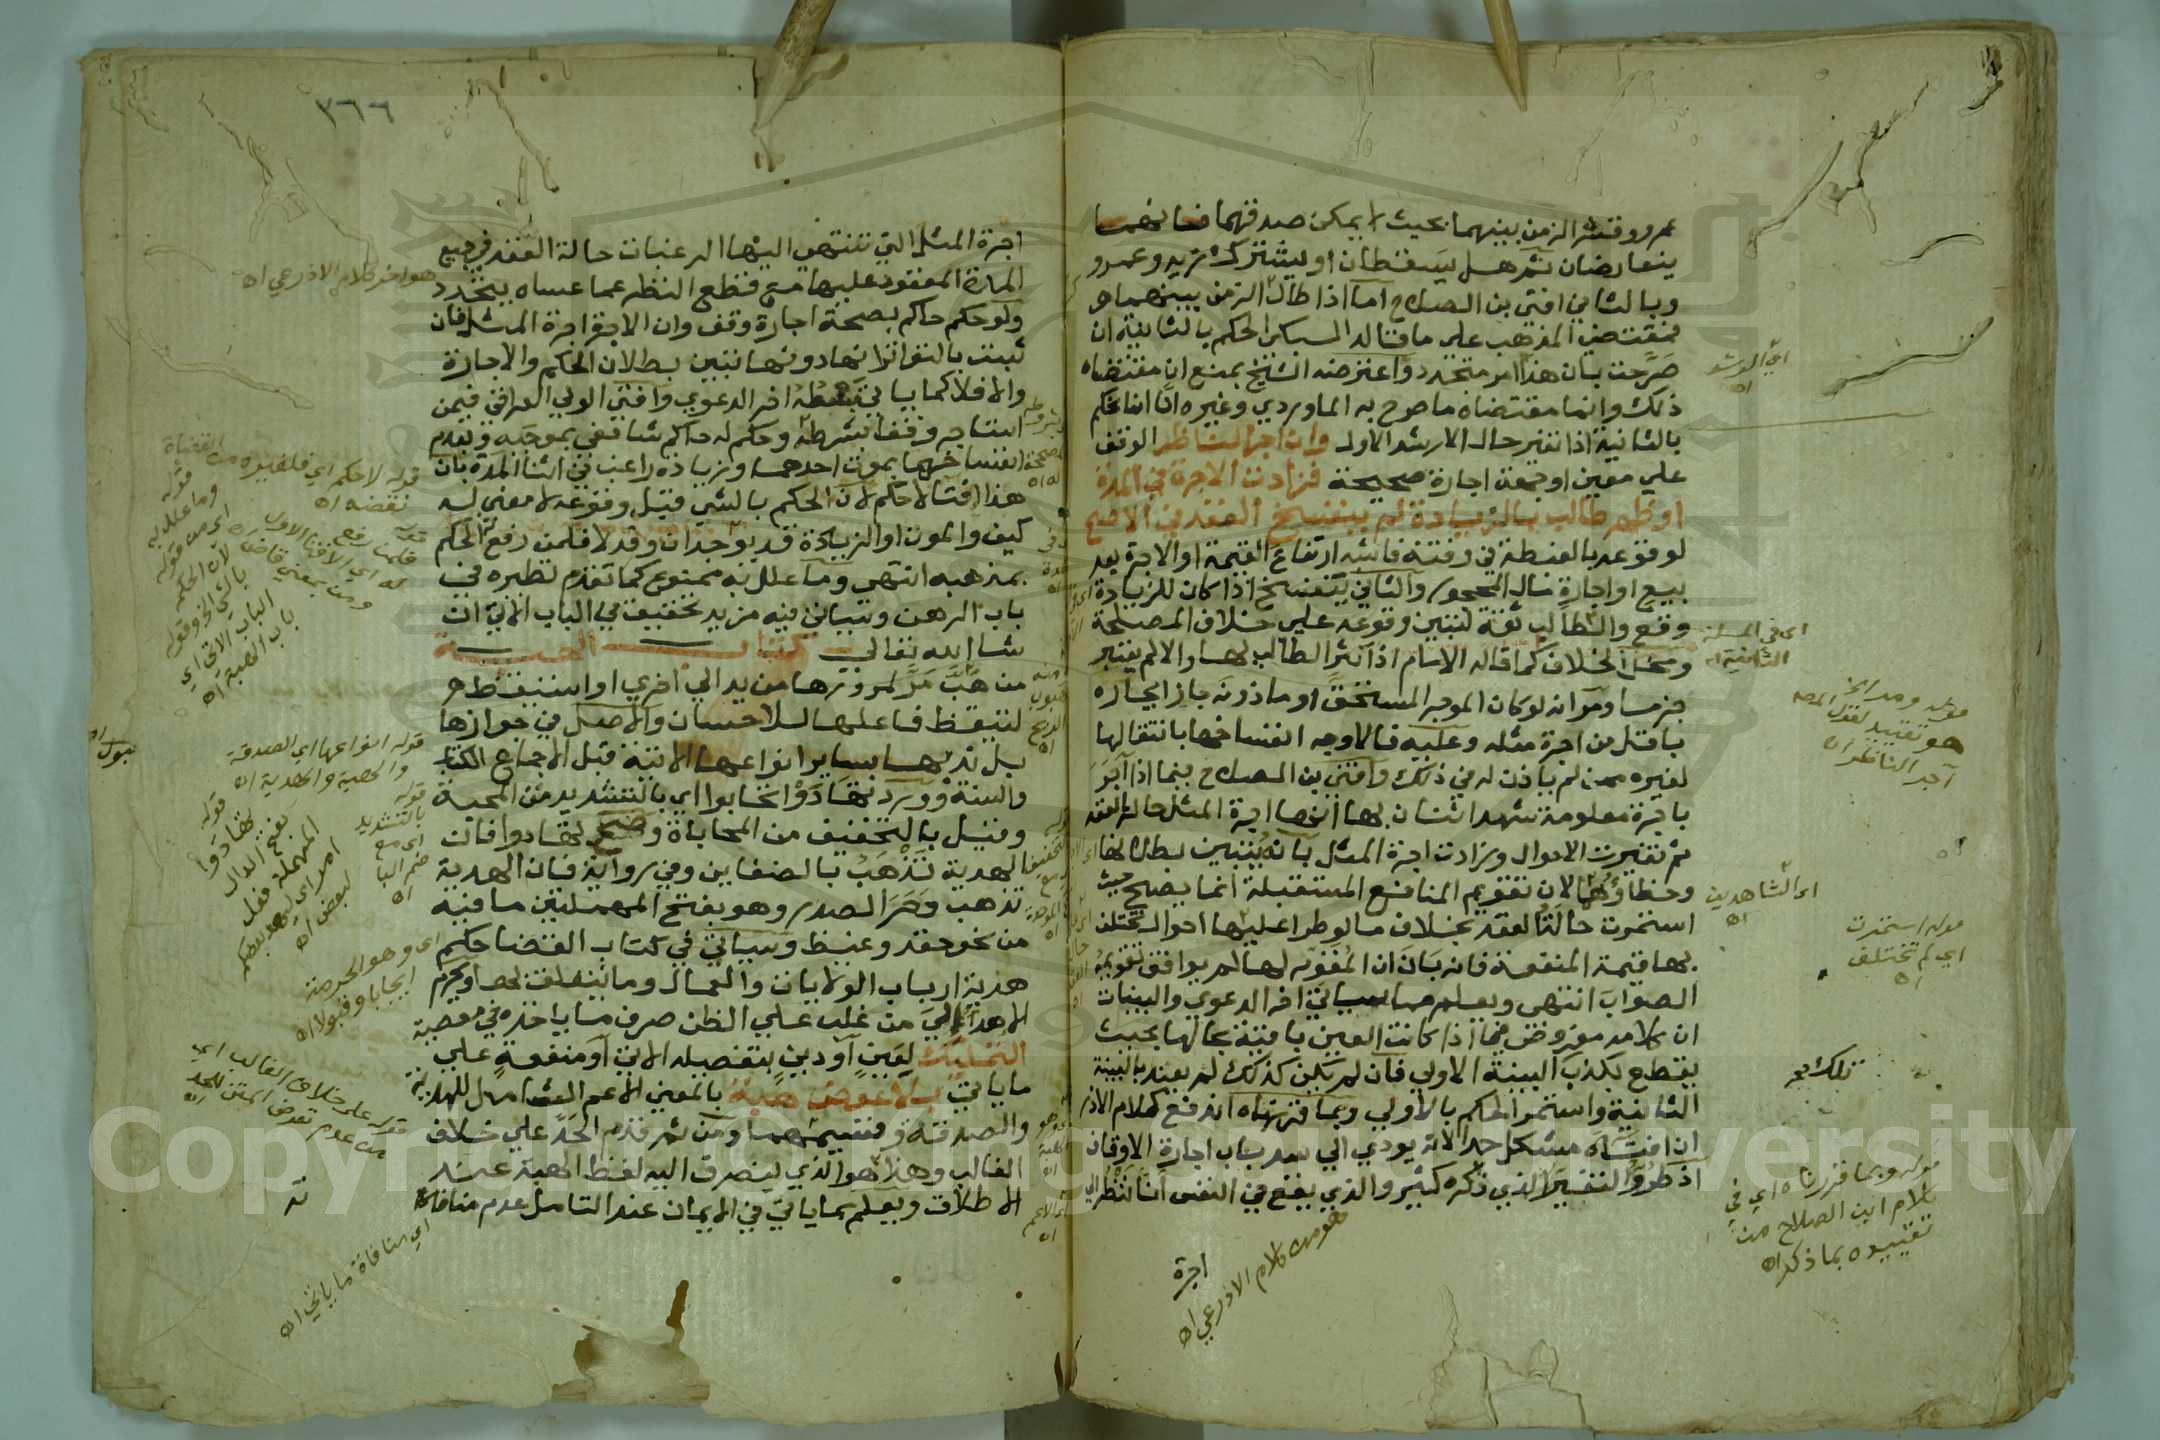 عمرو وقتئذ الزمن بينهما بحيث لا يمكن صدقهما فحانهمسا
يتعارضان ثم هل يسقطان او يشترك زيد وعمرو
وبالثاني افتى بن الصلاح اما اذا طال الزمن بينهما
فمقتضى المذهب على ما قاله السبكي الحكم بالثانية ان
صرحت بان هذا امر متجدد واعترضه الشيخ بمنع ان مقتضاه
ذلك وانما مقتضاه ما صرح به الماوردي وغيره انا انما نحكم
بالثانية اذا تغير حال الارشد الاول وان اجر الناظر الوقف
على معين او جهة اجارة صحيحة فزادت الاجرة في المدة
او ظهر طالب بالزيادة لم ينفسخ العقد في الاصح
لوقوعه بالغبطة في وقته فاشبه ارتفاع القيمة او الاجرة بعد
بيع او اجارة مال المحجور والثاني ينفسخ اذا كان للزيادة
وقع والطالب ثقة لتبين وقوعه على خلاف المصلحة
ومحل الخلاف كما قاله الامام اذا كثر الطالب لها والا لم يعتبر
جزما ومر انه لو كان الموجر المستحق او ماذونه جاز ايجاره
باقل من اجرة مثله وعليه فالاوجه انفساخها بانتقالها
لغيره ممن لم ياذن له في ذلك وافتى بن الصلاح فيما اذا اجر
باجرة معلومة شهد اثنان بها انها اجرة المثل حالة العقد
ثم تغيرت الاحوال وزادت اجرة المثل بانه يتبين بطلانها
وخطاؤهما لان تقويم المنافع المستقبلة انما يصح حيث
استمرت حالة العقد بخلاف ما لو طرا عليها احوال تختلف
بها قيمة المنفعة فانه بان ان المقوم لها لم يوافق تقويمه
الصواب انتهى ويعلم مما سياتي اخر الدعوى والبينات
ان كلامه مفروض فيما اذا كانت العين باقية بحالها بحيث
يقطع بكذب البينة الاولى فان لم يكن كذلك لم يعتد بالبينة
الثانية واستمر الحكم بالاولى وبما قررناه اندفع كلام الاذر
ان افتاه مشكل جدا لانه يودي الى سد باب اجارة الاوقاف
اذ طرو التغير الذي ذكره كثير والذي يقع في النفس انا ننظر الى
اجرة
اي المرشد اه
اي في المسئلة
الثانية اه
قوله ومحل الخ
هو تقييد لقول المص
آجر الناظر اه
اي الشاهدين
اه
قوله استمرت
اي لم تختلف
اه
تلك مجر
قوله وبما قررناه اي في
كلام ابن الصلاح من
تقييده بما ذكر اه
هو من كلام الاذرعي اه
٣٦٦
اجرة المثل التي تنتهي اليها الرغبات حالة العقد في جميع
المدة المعقود عليها مع قطع النظر عما عساه يتجدد
ولو حكم حاكم بصحة اجارة وقف وان الاجرة اجرة المثل فان
ثبت بالتواتر انها دونها تبين بطلان الحكم والاجارة
والا فلا كما ياتي بسطه اخر الدعوى وافتى الولي العراقي فيمن
استاجر وقفا بشرطه وحكم له حاكم شافعي بموجبه وبعدم
انفساخها بموت احدهما وزيادة راغب في اثنا المدة بان
هذا افتا لا حكم لان الحكم بالشي قبل وقوعه لا معنى له
كيف والموت او الزيادة قد يوجدان وقد لا فلمن رفع له الحكم
بمذهبه انتهى وما علل به ممنوع كما تقدم نظيره في
باب الرهن وسياتي فيه مزيد تحقيق في الباب الاتي ان
شا الله تعالى كتاب الهبة
من هب مر لمرورها من يد الى اخرى او استيقظ
لتيقظ فاعلها للاحسان والاصل في جوازها
بل ندبها بساير انواعها الاتية قبل الاجماع الكتاب
والسنة وورد تهادوا تحابوا اي بالتشديد من المحبة
وقيل بالتخفيف من المحاباة وصح تهادوا فان
الهدية تذهب بالضغاين وفي رواية فان الهدية
تذهب وحر الصدر وهو بفتح المهملتين ما فيه
من نحو حقد وغيظ وسياتي في كتاب القضا حكم
هدية ارباب الولايات والعمال وما يتعلق بها ويحرم
الاهدا الى من غلب على الظن صرف ما ياخذه في معصية
التمليك لعين او دين بتفصيله الاتي او منفعة على
ما ياتي بلا عوض هبة بالمعنى الاعم الشامل للهدية
والصدقة وقسيمتهما ومن ثم قدم الحد على خلاف
الغالب وهذا هو الذي ينصرف اليه لفظ الهبة عند
الاطلاق ويعلم مما ياتي في الايمان عند التامل عدم منافاة
هو اخر كلام الاذرعي اه
قوله لا حكم اي فلغيره من القضاة
نقضه اه
قوله انواعها اي الصدقة
والهبة والهدية اه
قوله
بالتشديد
اي مع
ضم البا
اه
قوله
تهادوا
بفتح الدال
المهملة فعل
امر اي ليهد بعضكم
لبعض اه
ايجابا وقبولا اه
قوله على خلاف الغالب اي
من عدم تعرض المتن للحد
اه
اي منافاة ما ياتي اه